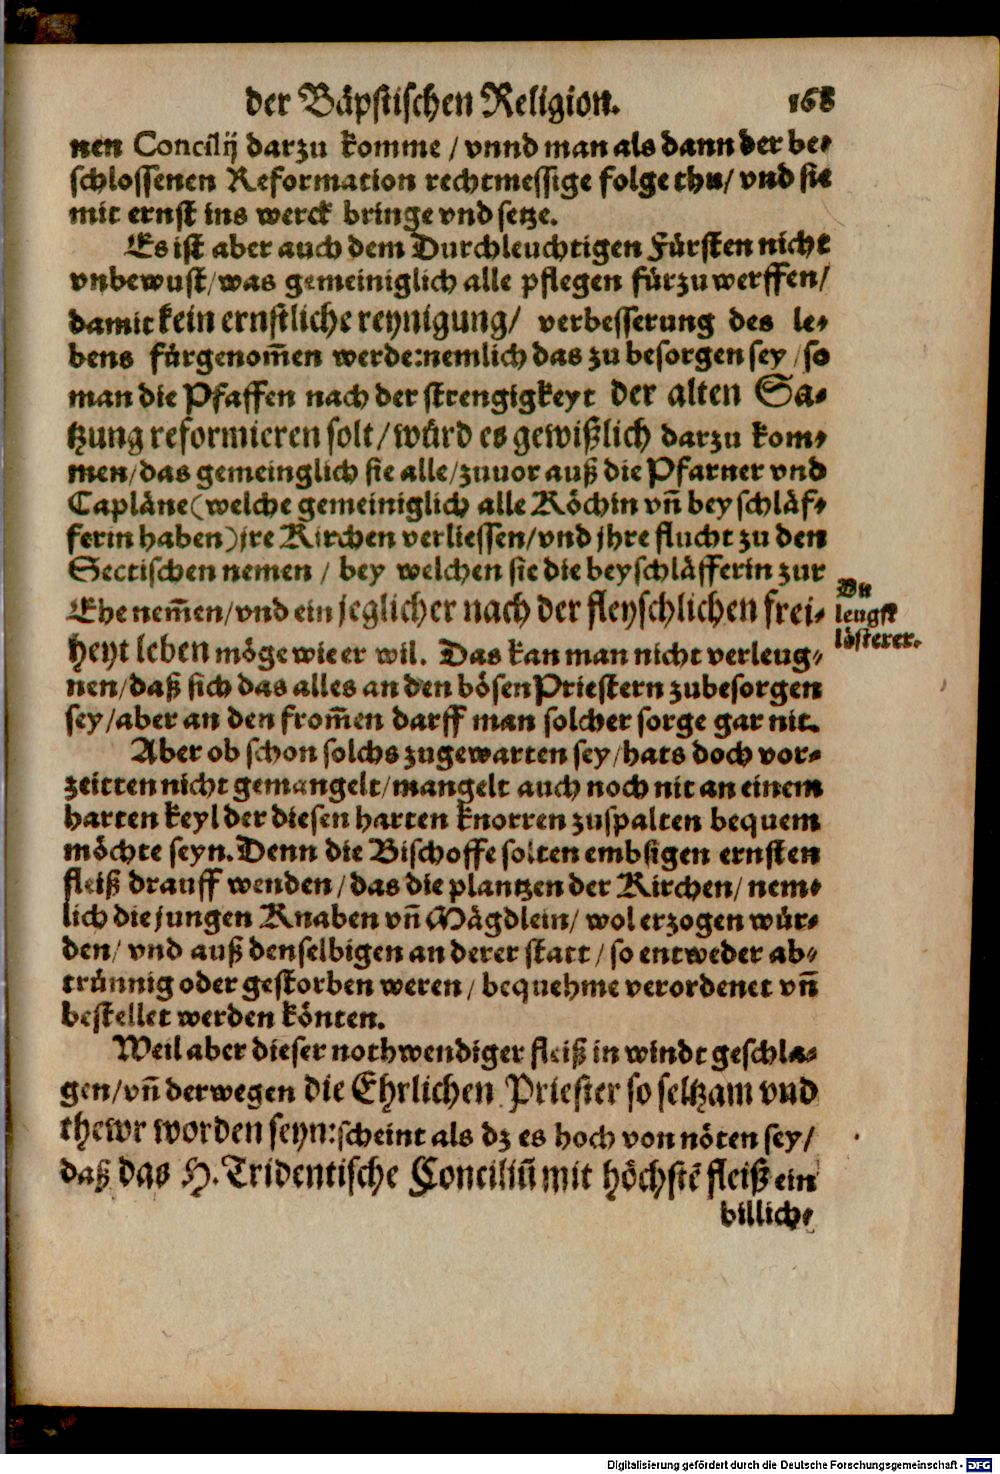 der Bäpstischen Religion. 168
nen Concilij darzu komme / vnnd man als dann der be-
schlossenen Reformation rechtmessige folge thu/ vnd sie
mit ernst ins werck bringe vnd setze.
Es ist aber auch dem Durchleuchtigen Fürsten nicht
vnbewust/was gemeiniglich alle pflegen fürzuwerffen/
damit kein ernstliche reynigung/ verbesserung des le-
bens fürgenom̄en werde:nemlich das zu besorgen sey/so
man die Pfaffen nach der strengigkeyt der alten Sa-
tzung reformieren solt/würd es gewißlich darzu kom-
men/das gemeinglich sie alle/zuuor auß die Pfarner vnd
Capläne(welche gemeiniglich alle Köchin vn̄ beyschläf-
ferin haben)jre Kirchen verliessen/vnd jhre flucht zu den
Sectischen nemen / bey welchen sie die beyschläfferin zur
Ehe nem̄en/vnd ein jeglicher nach der fleyschlichen frei-
heyt leben möge wie er wil. Das kan man nicht verleug-
nen/daß sich das alles an den bösen Priestern zubesorgen
sey/aber an den from̄en darff man solcher sorge gar nit.
Du
leugst
lösterer.
Aber ob schon solchs zugewarten sey/hats doch vor-
zeitten nicht gemangelt/mangelt auch noch nit an einem
harten keyl der diesen harten knorren zuspalten bequem
möchte seyn. Denn die Bischoffe solten embsigen ernsten
fleiß drauff wenden/das die plantzen der Kirchen/ nem-
lich die jungen Knaben vn̄ Mägdlein/ wol erzogen wür-
den/ vnd auß denselbigen an derer statt/so entweder ab-
trünnig oder gestorben weren/ bequehme verordenet vn̄
bestellet werden könten.
Weil aber dieser nothwendiger fleiß in windt geschla-
gen/vn̄ derwegen die Ehrlichen Priester so seltzam vnd
thewr worden seyn:scheint als dz es hoch von nöten sey/
daß das H. Tridentische Conciliū mit höchstē fleiß ein
billich-
Digitalisierung gefördert durch die Deutsche Forschungsgemeinschaft - DFG